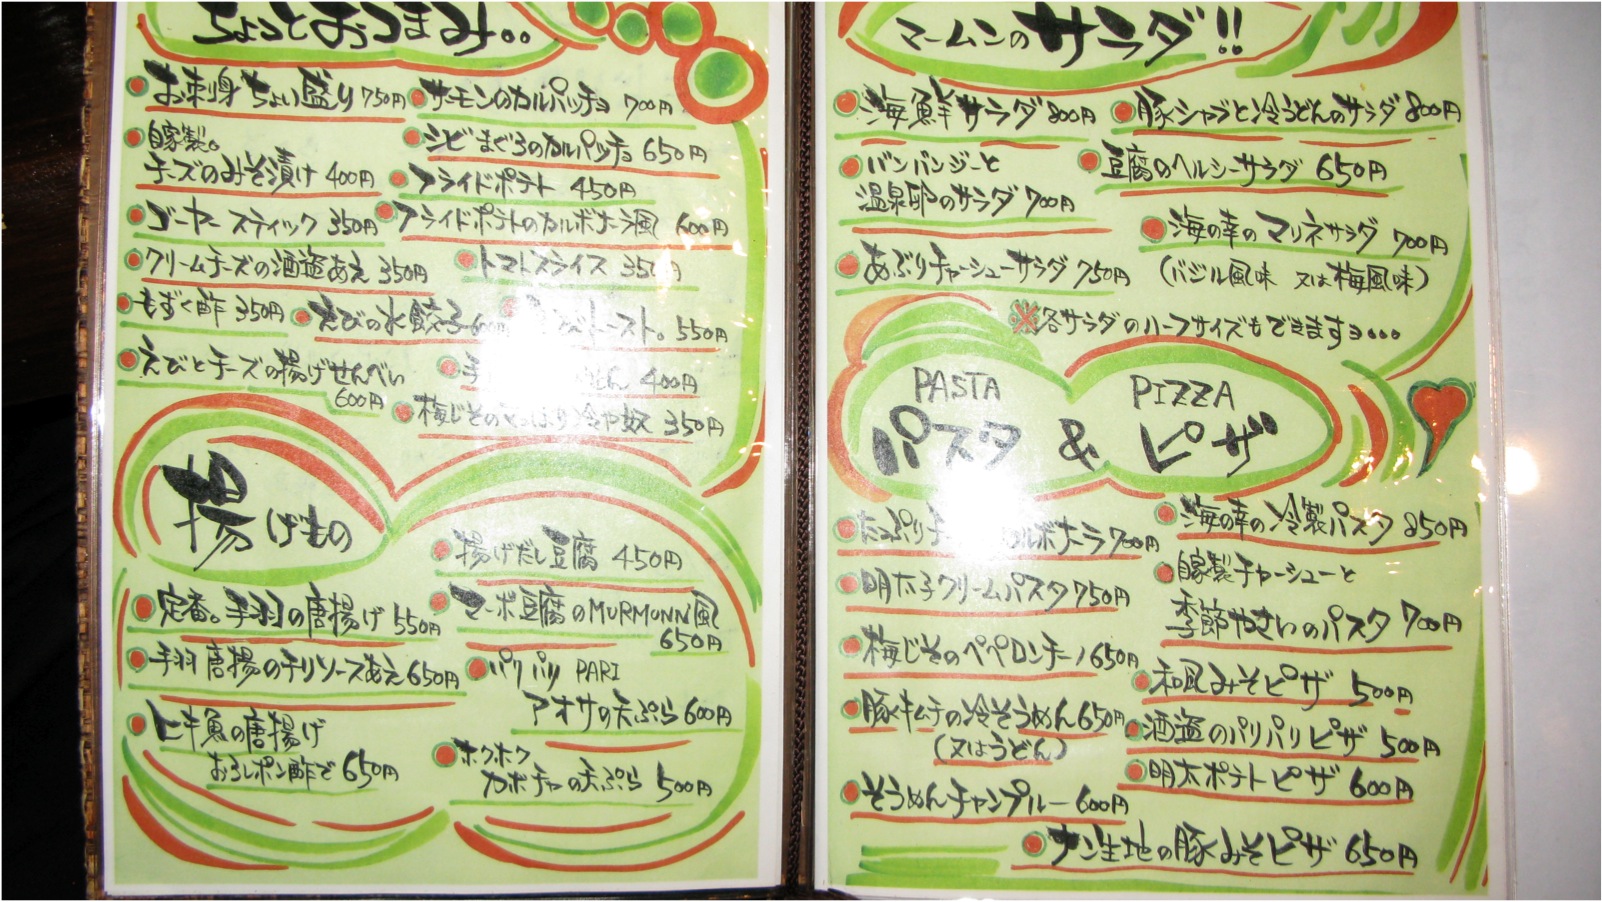 ちょっとおつまみ..
お刺身ちょい盛り 750円
サーモンのカルパッチョ 700円
自家製。
チーズのみそ漬け 400円
シビまぐろのカルパッチョ 650円
フライドポテト 450円
ゴーヤースティック 350円
フライドポテトのカルボナーラ風 600円
クリームチーズの酒盗あえ 350円
トマトスライス 350円
もずく酢 350円
えびの水餃子 600円
トースト。550円
えびとチーズの揚げせんべい
600円
手 400円
梅じその 冷や奴 350円
揚げもの
揚げだし豆腐 450円
定番。手羽の唐揚げ 550円
マーボ豆腐のMURMUNN風
650円
手羽唐揚のチリソースあえ 650円
パリパリ PARI
アオサの天ぷら 600円
ミーバイ魚の唐揚げ
おろしポン酢で 650円
ホクホク
カボチャの天ぷら 500円
マームンのサラダ!!
海鮮サラダ 800円
豚シャブと冷うどんのサラダ 800円
バンバンジーと
温泉卵のサラダ 700円
豆腐のヘルシーサラダ 650円
海の幸のマリネサラダ 700円
(バジル風味 又は梅風味)
あぶりチャーシューサラダ 750円
※各サラダのハーフサイズもできますョ...
PASTA PIZZA
パスタ & ピザ
たっぷり カルボナーラ 700円
海の幸の冷製パスタ 850円
明太子クリームパスタ 750円
自家製チャーシューと
季節やさいのパスタ 700円
梅じそのペペロンチーノ 650円
和風みそピザ 500円
豚キムチの冷そうめん 650円
(又はうどん)
酒盗のパリパリピザ 500円
明太ポテトピザ 600円
そうめんチャンプルー 600円
ナン生地の豚みそピザ 650円